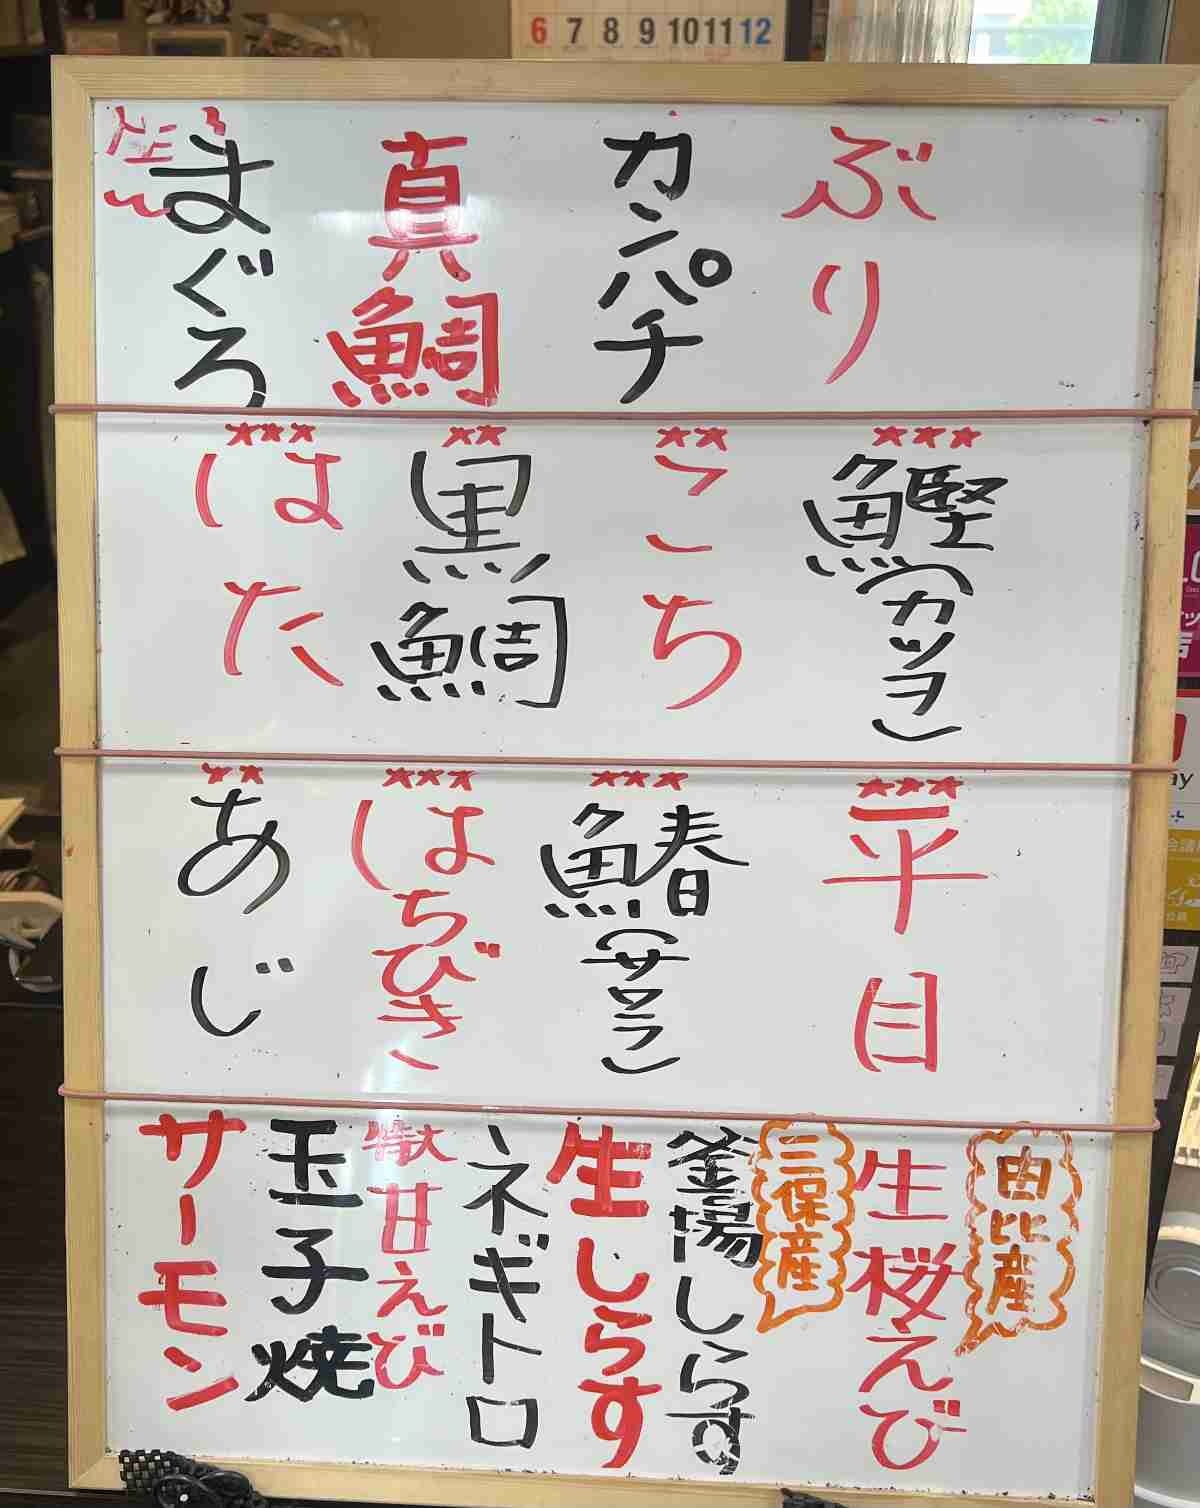 6 7 8 9 10 11 12
ぶり
カンパチ
真鯛
生まぐろ
★★★
鰹(カツヲ)
★★
こち
★★
黒鯛
★★★
はた
★★★
平目
★★★
鰆(サワラ)
★★★
はちびき
★★
あじ
由比産
生桜えび
三保産
釜揚しらす
生しらす
ネギトロ
特大甘えび
玉子焼
サーモン